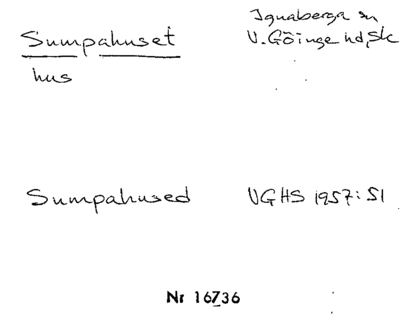 Sumpahuset
Ignaberga sn
V. Göinge hd, Sk
hus
Sumpahused
VGHS 1957:51
Nr 16736